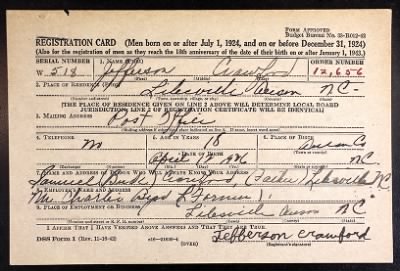 Form Approved
Budget Bureau No. 33-R012-42
REGISTRATION CARD (Men born on or after July 1, 1924, and on or before December 31, 1924)
(Also for the registration of men as they reach the 18th anniversary of the date of their birth on or after January 1, 1943.)
SERIAL NUMBER 1. NAME ORDER NUMBER
W 518 Jefferson Crawford 12,656
2. PLACE OF RESIDENCE
Lilesville Anson NC
[THE PLACE OF RESIDENCE GIVEN ON LINE 2 ABOVE WILL DETERMINE LOCAL BOARD
JURISDICTION; LINE 2 OF REGISTRATION CERTIFICATE WILL BE IDENTICAL]
3. MAILING ADDRESS
Post Office
4. TELEPHONE 5. AGE IN YEARS 6. PLACE OF BIRTH
no 18 Anson Co
DATE OF BIRTH
April NC
7. NAME AND ADDRESS OF PERSON WHO WILL ALWAYS KNOW YOUR ADDRESS
Samuel Crawford (Father) Lilesville NC
8. EMPLOYER'S NAME AND ADDRESS
Mr. Charlie
9. PLACE OF EMPLOYMENT OR BUSINESS
Lilesville Anson NC
I AFFIRM THAT I HAVE VERIFIED ABOVE ANSWERS AND THAT THEY ARE TRUE.
DSS Form 1 (Rev. 11-16-42) (OVER)
Jefferson Crawford
(Registrant's signature)